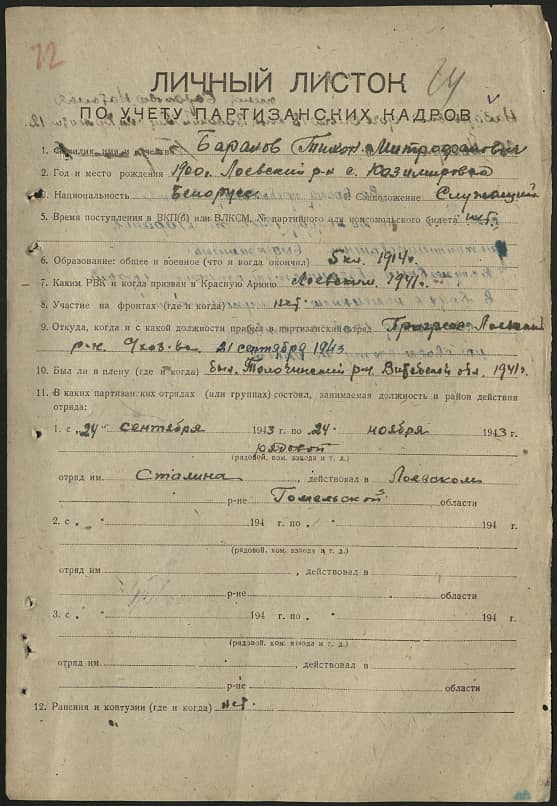 72
ЛИЧНЫЙ ЛИСТОК
24
ПО УЧЕТУ ПАРТИЗАНСКИХ КАДРОВ
1. Фамилия, имя и отчество Баранов Тихон Митрофанович
2. Год и место рождения 1900г. Лоевский р-н с. Казимировка
3. Национальность Белорусс положение Служащий
5. Время поступления в ВКП(б) или ВЛКСМ, № партийного или комсомольского билета нет.
6. Образование: общее и военное (что и когда окончил) 5 кл. 1914 г.
7. Каким РВК и когда призван в Красную Армию Лоевским. 1941 г.
8. Участие на фронтах (где и когда) нет.
9. Откуда, когда и с какой должности прибыл в партизанский отряд Прогрес Лоевский
р-на. 21 сентября 1943
10. Был ли в плену (где и когда) был. Толочинский р-н. Витебской обл. 1941 г.
11. В каких партизанских отрядах (или группах) состоял, занимаемая должность и район действия
отряда:
1. с „24" сентября 1943 г. по „24" ноября 1943 г.
рядовой
(рядовой, ком. взвода и т. д.)
отряд им. Сталина, действовал в Лоевском
р-не Гомельской области
2. с „ " 194 г. по „ " 194 г.
(рядовой, ком. взвода и т. д.)
отряд им , действовал в
р-не области
3. с „ " 194 г. по „ " 194 г.
(рядовой, ком. взвода и т. д.)
отряд им , действовал в
р-не области
12. Ранения и контузии (где и когда) нет.